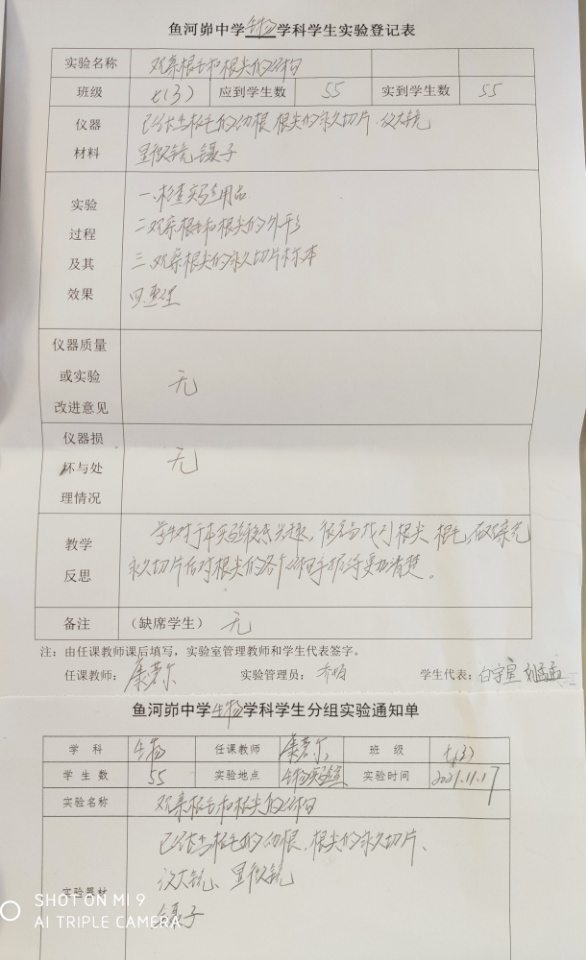 鱼河峁中学生物学科学生实验登记表
实验名称 观察根毛和根尖的结构
班级 七(3) 应到学生数 55 实到学生数 55
仪器 已长出根毛的幼根 根尖的永久切片 放大镜
材料 显微镜 镊子
实验 一.检查实验用品
过程 二.观察根毛和根尖的外形
及其 三.观察根尖的永久切片标本
效果 四.整理
仪器质量
或实验 无
改进意见
仪器损
坏与处 无
理情况
教学 学生对于本实验很感兴趣,很容易找到根尖 根毛,在观察完
反思 永久切片后对根尖的各个结构掌握得更加清楚。
备注 (缺席学生) 无
注:由任课教师课后填写,实验室管理教师和学生代表签字。
任课教师: 实验管理员: 学生代表:
鱼河峁中学生物学科学生分组实验通知单
学 科 生物 任课教师 班 级 七(3)
学 生 数 55 实验地点 生物实验室 实验时间 2021.11.17
实验名称 观察根毛和根尖的结构
已长出根毛的幼根、根尖的永久切片、
实验器材 放大镜、显微镜
镊子
SHOT ON MI 9
AI TRIPLE CAMERA